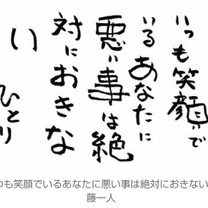 いつも笑顔で
いるあなたに
悪い事は絶
対におきな
い
ひとり
つも笑顔でいるあなたに悪い事は絶対におきない
藤一人